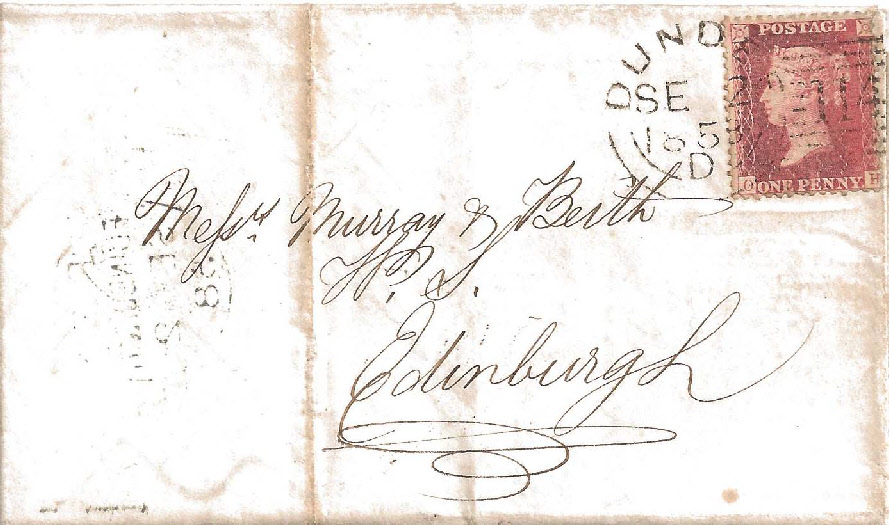 POSTAGE
ONE PENNY
DUND
SE
185
D
114
Messrs Murray & Beith
W.S.
Edinburgh